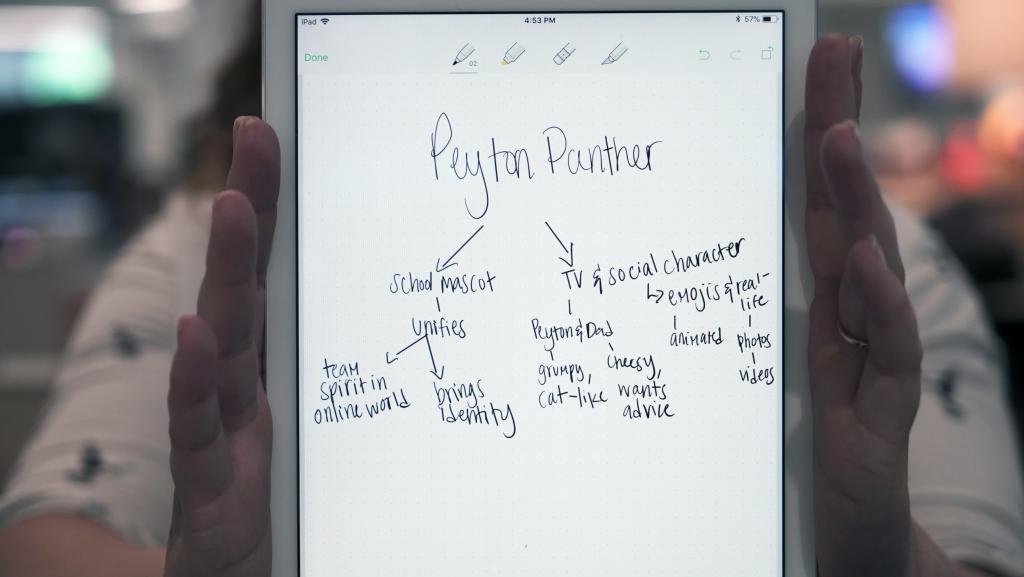 iPad 4:53 PM 57%
Done
02
Peyton Panther
school mascot
unifies
team
spirit in
online world
brings
identity
TV & social character
↳ emojis & real-
life
animated
photos
videos
Peyton & Dad
grumpy,
cat-like
cheesy,
wants
advice